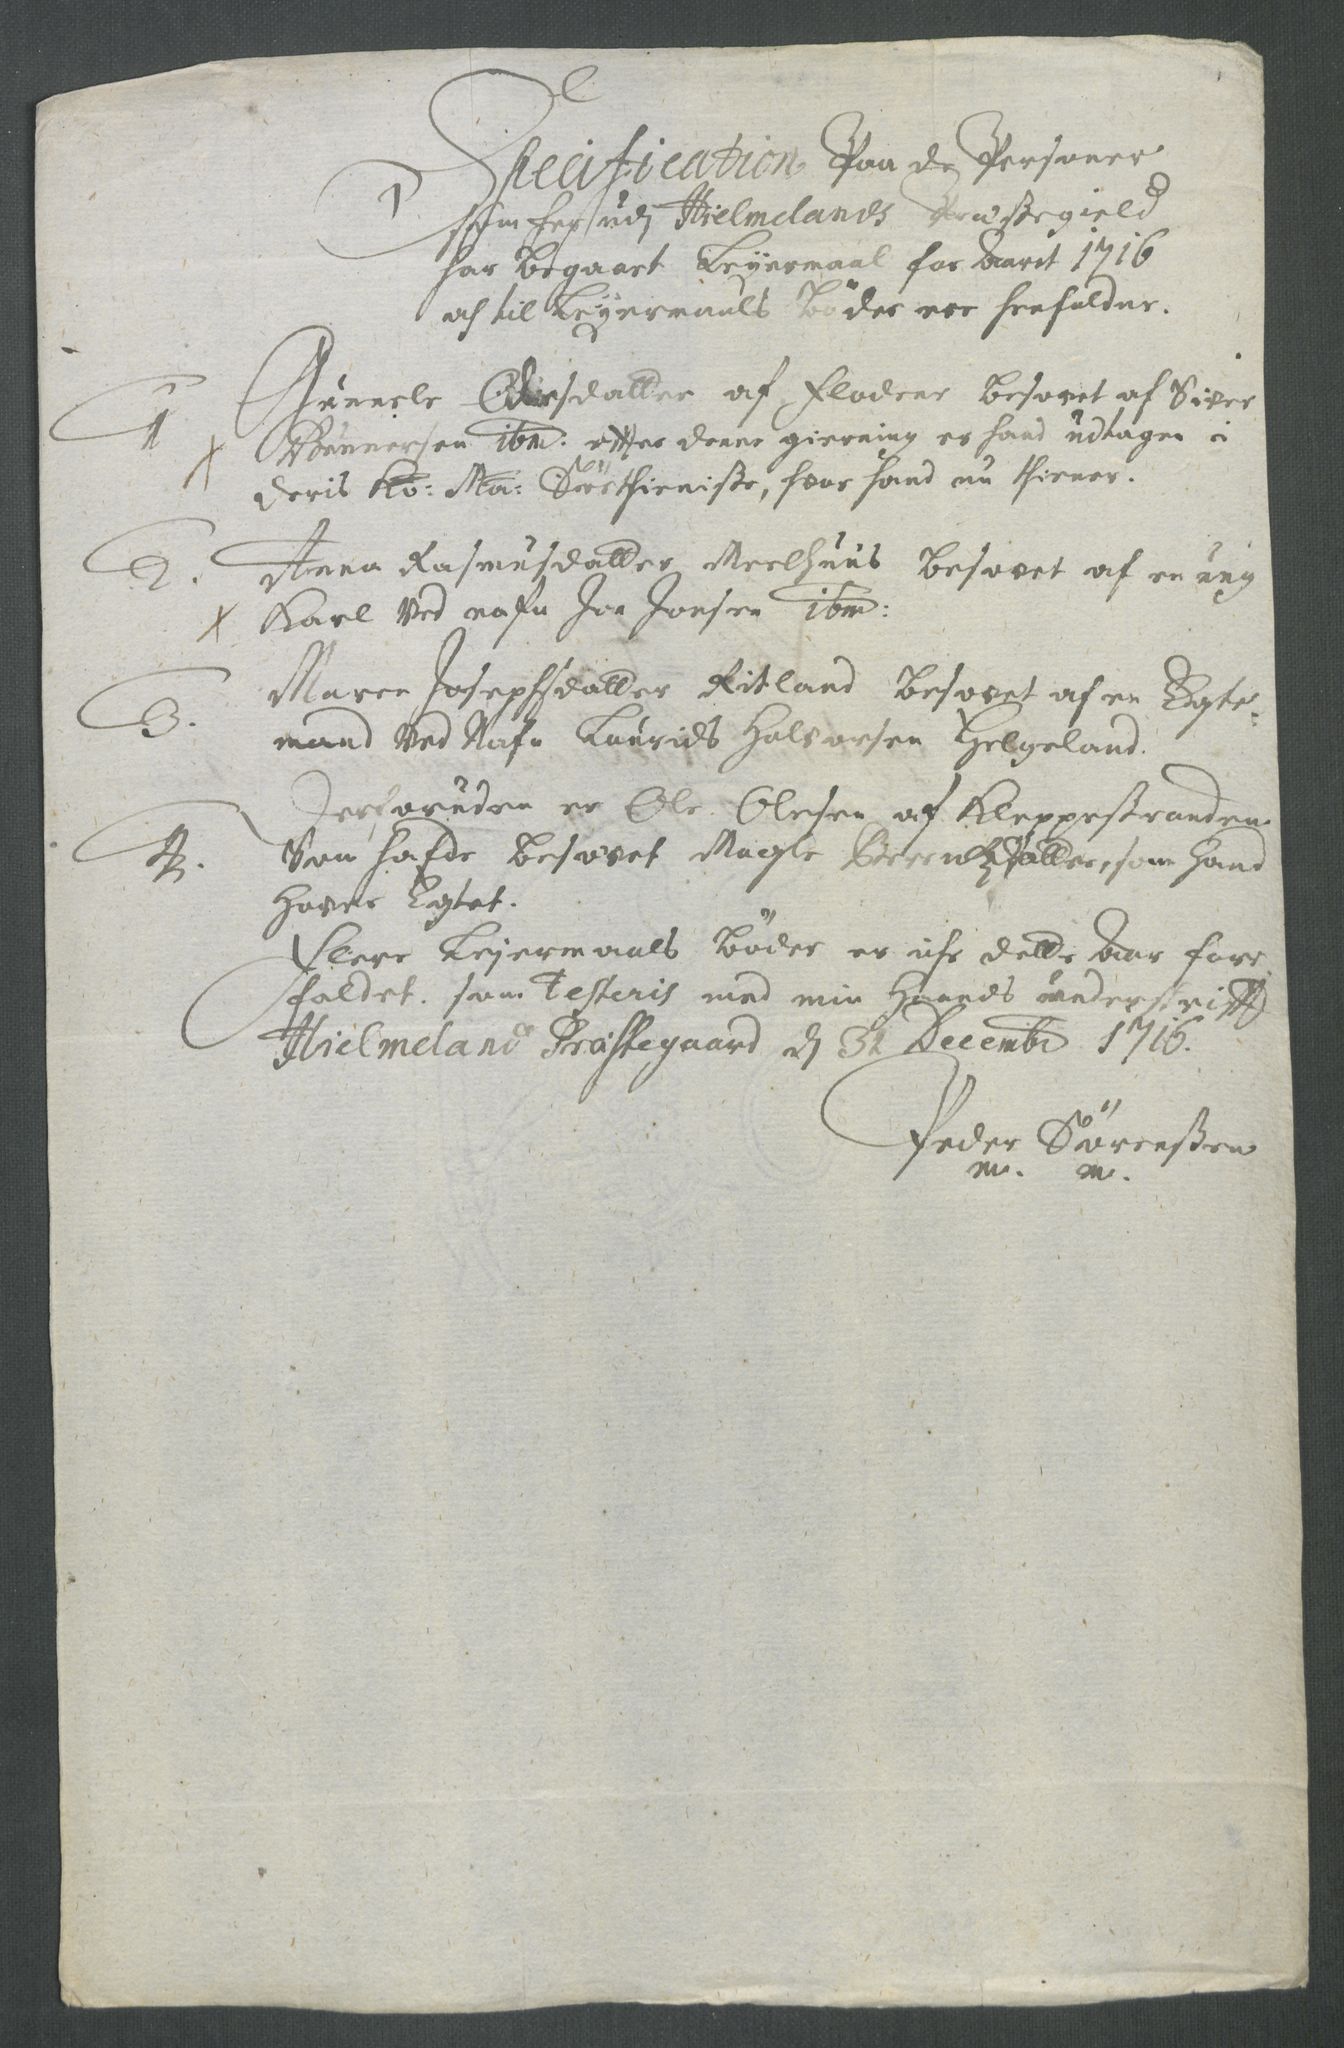 Specification Paa de Personer
som her udj Hielmelands Præstegield
har begaaet Leyermaal for Aaret 1716
af til Leyermaals Böder ere henfaldne.
1 Gunnele Olesdatter af Flodene besovet af Siver
Gunnersen ibm. efter denne gierning er hand udtagen i
deris Ko: Ma: Söe thieniste, hvor hand nu thiener.
2. Anna Rasmusdatter Meelhuus besovet af en ung
Karl ved nafn Jon Jonsen ibm:
3. Maren Josephsdatter Ritland besovet af en Egte-
mand ved Nafn Laurids Halvorsen Helgeland.
Desforuden er Ole Olesen af Kleppestranden
4. Som hafde besovet Magle som hand
haver Egtet.
Flere Leyermaals böder er iche dette Aar fore
faldet. som Testeris med min Haands underskrifft
Hielmeland Præstegaard dj 31 Decembr 1716.
Peder Sörenssen
m. m.